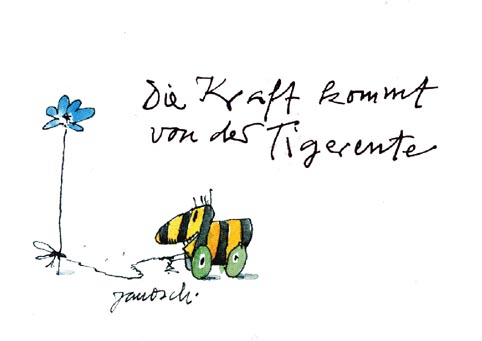 Die Kraft kommt
von der Tigerente
janosch.